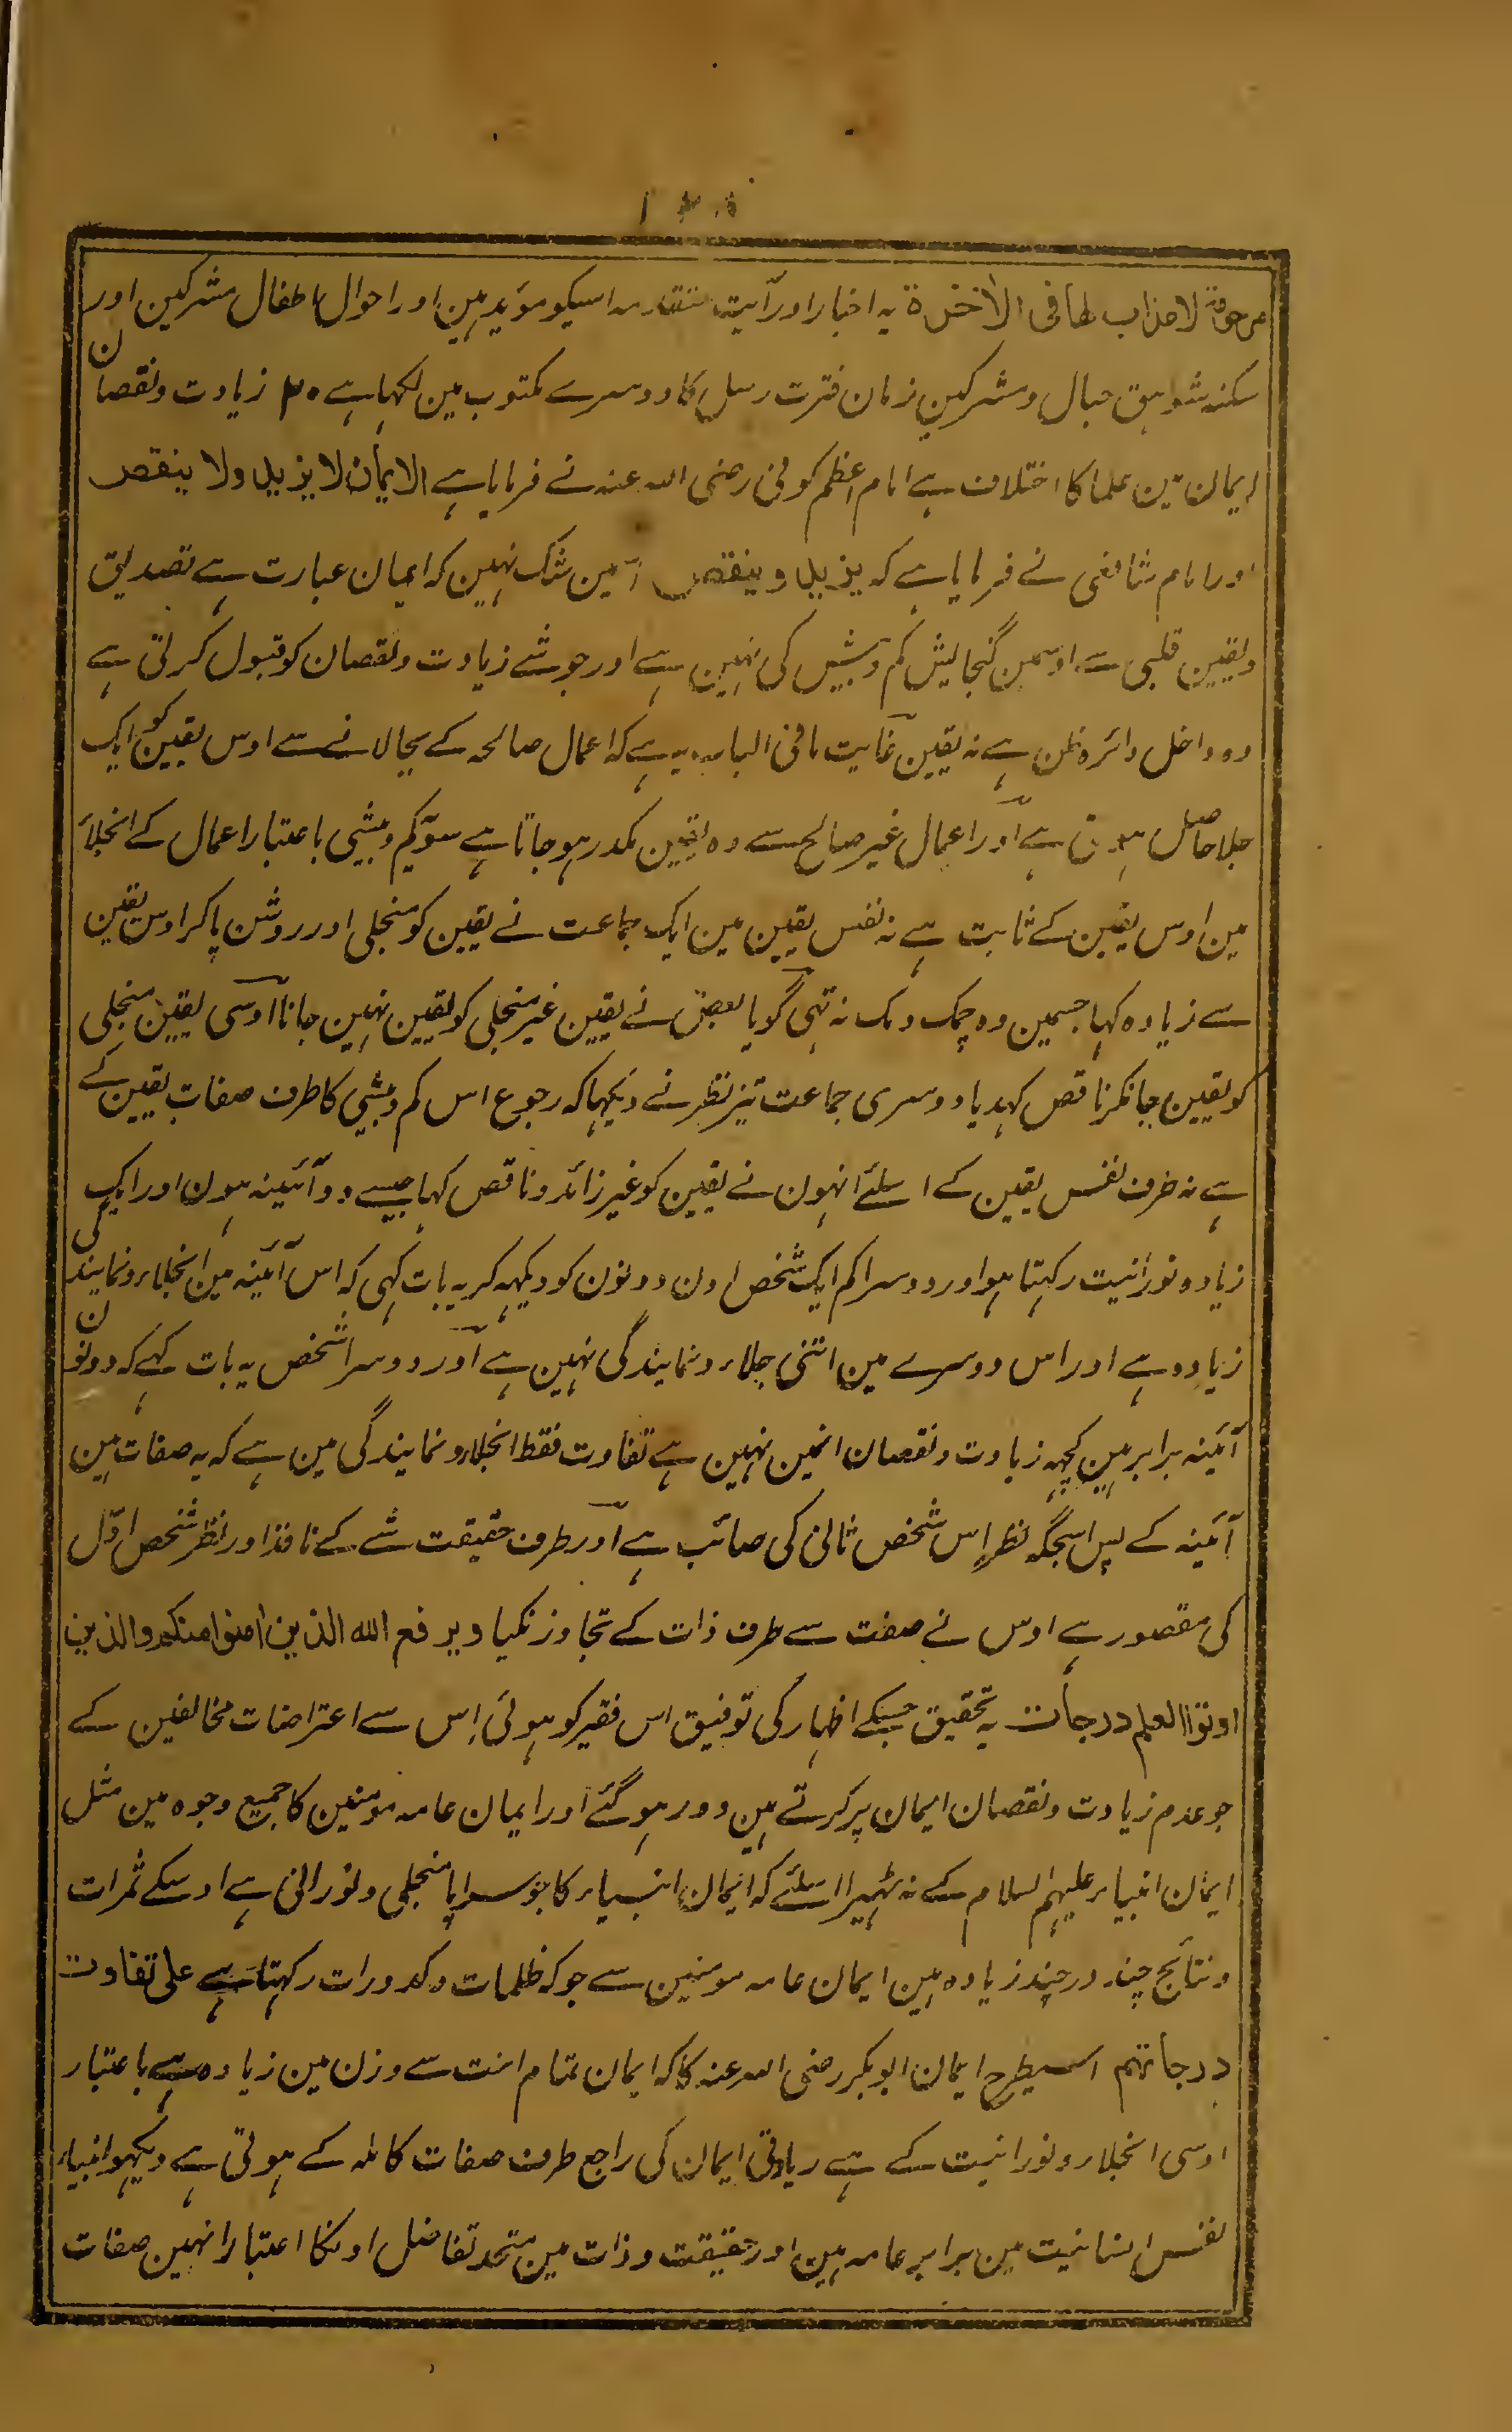 ۱۳۵
مرحومة لا عذاب لها فی الاخرة یہ اخبار اور آیت متقدمہ اسیکو موید ہین اور احوال اطفال مشرکین اور
سکنہ شواہق جبال و مشرکین زمان فترت رسل کا دوسرے مکتوب مین لکہا ہے ۲۰ زیادت ونقصان
ایمان مین علما کا اختلاف ہے امام اعظم کوفی رضی اللہ عنہ نے فرمایا ہے الایمان لا یزید ولا ینقص
اور امام شافعی نے فرمایا ہے کہ یزید و ینقص اسمین شک نہین کہ ایمان عبارت ہے تصدیق
ویقین قلبی سے اوسمین گنجایش کم وبیش کی نہین ہے اور جو شے زیادت ونقصان کو قبول کرتی ہے
وہ داخل دائرہ ظن ہے نہ یقین غایت ما فی الباب یہ ہے کہ اعمال صالحہ کے بجالانے سے اوس یقین کو ایک
جلا حاصل ہوتی ہے اور اعمال غیر صالح سے وہ یقین مکدر ہو جاتا ہے سو کم وبیشی باعتبار اعمال کے انجلاء
مین اوس یقین کے ثابت ہے نہ نفس یقین مین ایک جماعت نے یقین کو منجلی اور روشن پاکر اوس یقین
سے زیادہ کہا جسمین وہ چمک دمک نہ تہی گویا بعض نے یقین غیر منجلی کو یقین نہین جانا اوسی یقین منجلی
کو یقین جانکر ناقص کہدیا دوسری جماعت تیز نظر نے دیکہا کہ رجوع اس کم وبیشی کا طرف صفات یقین کے
ہے نہ طرف نفس یقین کے اسلئے انہون نے یقین کو غیر زائد وناقص کہا جیسے دو آئینہ ہون اور ایک
زیادہ نورانیت رکہتا ہو اور دوسرا کم ایک شخص اون دونون کو دیکہہ کر یہ بات کہی کہ اس آئینہ مین انجلاء ونمایندگی
زیادہ ہے اور اس دوسرے مین اتنی جلاء ونمایندگی نہین ہے اور دوسرا شخص یہ بات کہے کہ دونون
آئینہ برابر ہین کچہہ زیادت ونقصان انمین نہین ہے تفاوت فقط انجلاء ونمایندگی مین ہے کہ یہ صفات ہین
آئینہ کے پس اسجگہ نظر اس شخص ثانی کی صائب ہے اور طرف حقیقت شے کے نافذ اور نظر شخص اوّل
کی مقصور ہے اوس نے صفت سے طرف ذات کے تجاوز نکیا ویرفع الله الذین امنوا منکم والذین
اوتوا العلم درجات یہ تحقیق جسکے اظہار کی توفیق اس فقیر کو ہوئی اِس سے اعتراضات مخالفین کے
جو عدم زیادت ونقصان ایمان پر کرتے ہین دور ہو گئے اور ایمان عامہ مومنین کا جمیع وجوہ مین مثل
ایمان انبیاء علیہم السلام کے نہ ٹہیرا اسلئے کہ ایمان انبیاء کا جو سراپا منجلی ونورانی ہے اوسکے ثمرات
ونتایج چند در چند زیادہ ہین ایمان عامہ مومنین سے جو کہ ظلمات وکدورات رکہتا ہے علی تفاوت
درجاتہم اسیطرح ایمان ابوبکر رضی اللہ عنہ کا کہ ایمان تمام امت سے وزن مین زیادہ ہے باعتبار
اوسی انجلاء ونورانیت کے ہے زیادتی ایمان کی راجع طرف صفات کاملہ کے ہوتی ہے دیکہو انبیاء
نفس انسانیت مین برابر عامہ ہین اور حقیقت وذات مین متحد تفاضل اونکا اعتبار انہین صفات